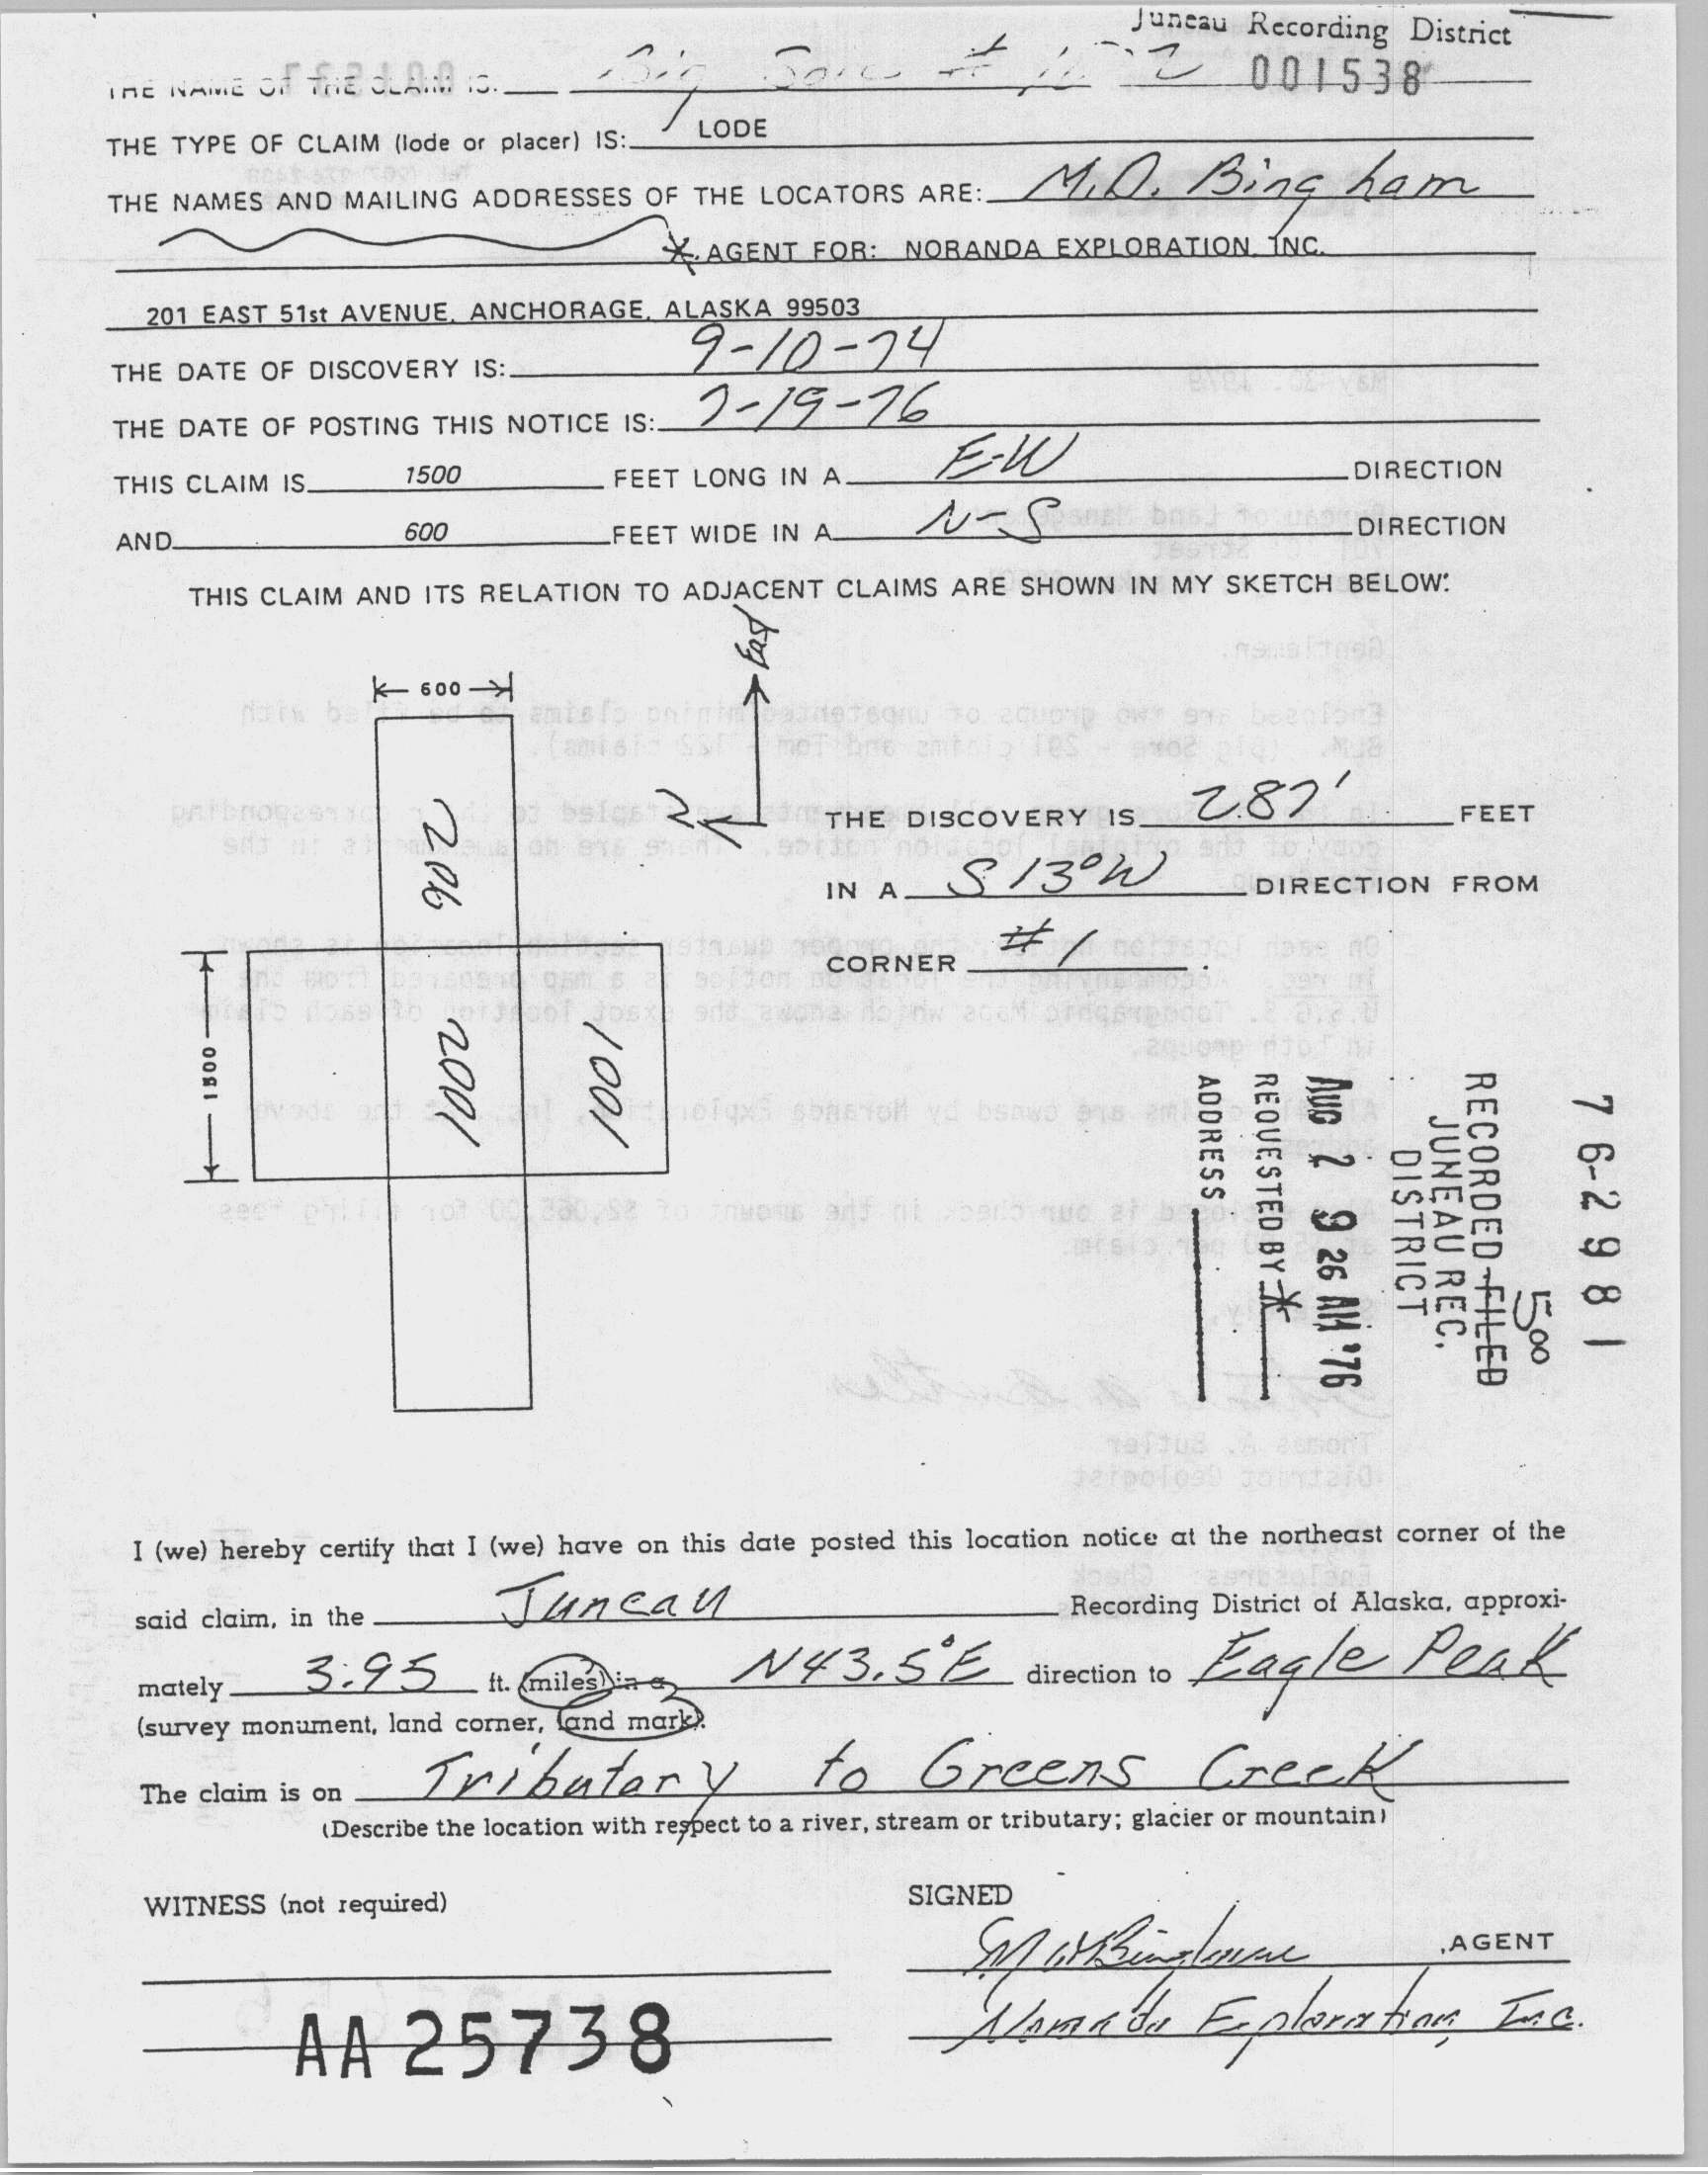 Juneau Recording District
THE NAME OF THE CLAIM IS: Big Sore # 1002 001538
THE TYPE OF CLAIM (lode or placer) IS: LODE
THE NAMES AND MAILING ADDRESSES OF THE LOCATORS ARE: M.D. Bingham
*. AGENT FOR: NORANDA EXPLORATION, INC.
201 EAST 51st AVENUE, ANCHORAGE, ALASKA 99503
THE DATE OF DISCOVERY IS: 9-10-74
THE DATE OF POSTING THIS NOTICE IS: 7-19-76
THIS CLAIM IS 1500 FEET LONG IN A E-W DIRECTION
AND 600 FEET WIDE IN A N-S DIRECTION
THIS CLAIM AND ITS RELATION TO ADJACENT CLAIMS ARE SHOWN IN MY SKETCH BELOW:
East
600
N
906
THE DISCOVERY IS 2.87' FEET
IN A S 13° W DIRECTION FROM
CORNER # 1.
1500
1002
1001
76-2981
5 00
RECORDED - FILED
JUNEAU REC.
DISTRICT
AUG 2 9 26 AM '76
REQUESTED BY *
ADDRESS
I (we) hereby certify that I (we) have on this date posted this location notice at the northeast corner of the
said claim, in the Juneau Recording District of Alaska, approxi-
mately 3.95 ft. (miles) in a N43.5°E direction to Eagle Peak
(survey monument, land corner, land mark).
The claim is on Tributary to Greens Creek
(Describe the location with respect to a river, stream or tributary; glacier or mountain)
WITNESS (not required)
SIGNED
M D Bingham, AGENT
Noranda Exploration, Inc.
AA 25738